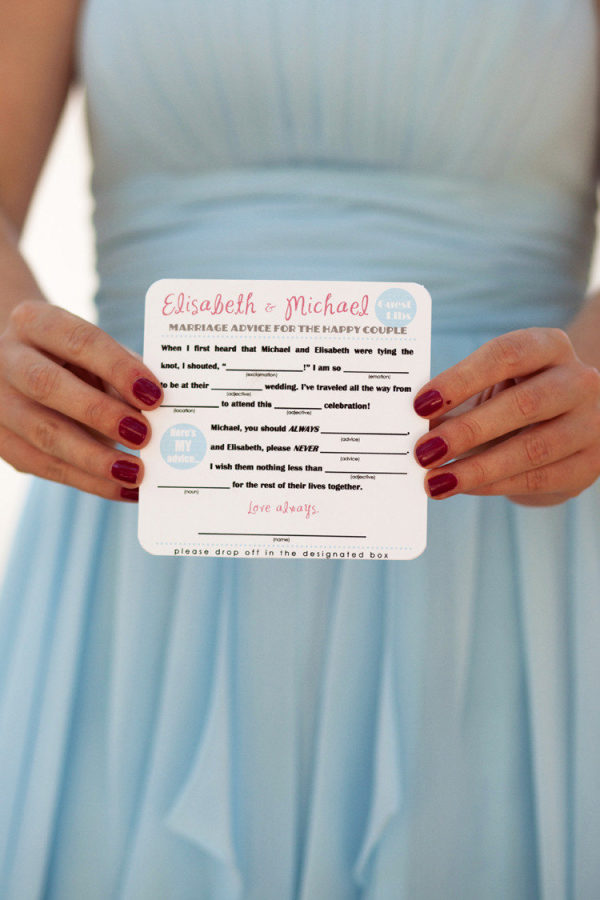 Elisabeth & Michael
Guest Libs
MARRIAGE ADVICE FOR THE HAPPY COUPLE
When I first heard that Michael and Elisabeth were tying the
knot, I shouted, "____________!" I am so __________
(exclamation) (emotion)
to be at their __________ wedding. I've traveled all the way from
(adjective)
__________ to attend this _________ celebration!
(location) (adjective)
Here's MY advice...
Michael, you should ALWAYS ______________,
(advice)
and Elisabeth, please NEVER ______________.
(advice)
I wish them nothing less than ______________
(adjective)
____________ for the rest of their lives together.
(noun)
Love always,
______________________
(name)
please drop off in the designated box